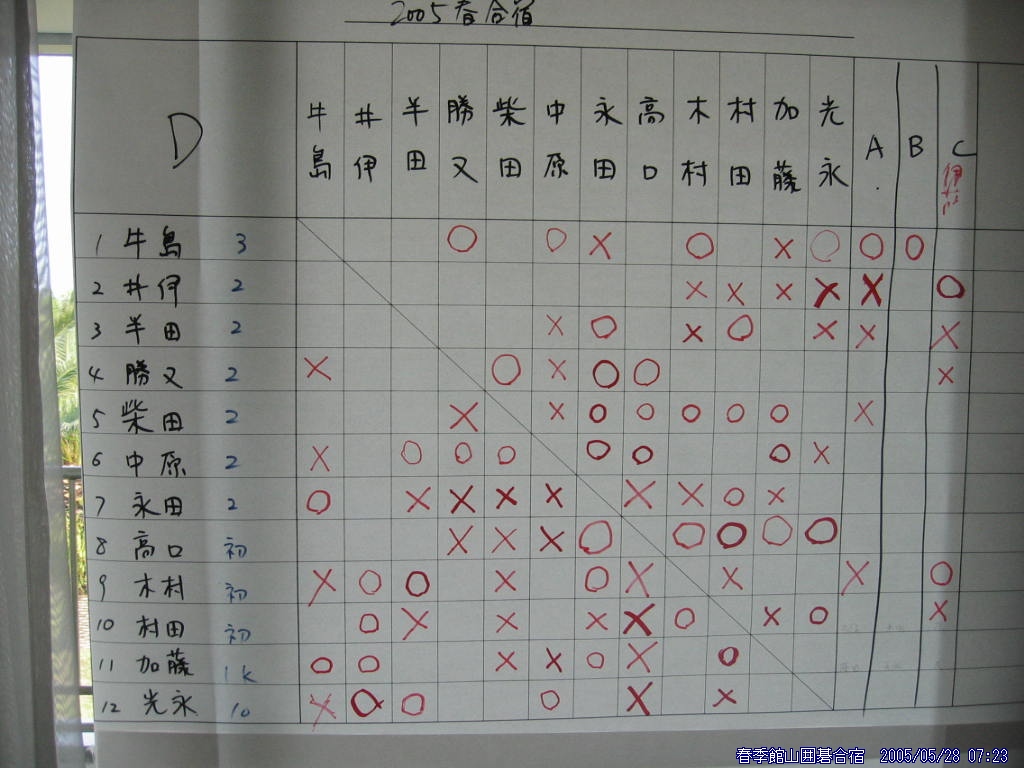 2005春合宿
D 牛島 井伊 羊田 勝又 柴田 中原 永田 高口 木村 村田 加藤 光永 A B C
1 牛島 3 ○ ○ × ○ × ○ ○ ○
2 井伊 2 × × × × × ○
3 羊田 2 × ○ × ○ × × ×
4 勝又 2 × ○ × ○ ○ ×
5 柴田 2 × × ○ ○ ○ ○ ○ ×
6 中原 2 × ○ ○ ○ ○ ○ ○ ×
7 永田 2 ○ × × × × × × ○ ×
8 高口 初 × × × ○ ○ ○ ○ ○
9 木村 初 × ○ ○ × ○ × × × ○
10 村田 初 ○ × × × × ○ × ○ ×
11 加藤 1k ○ ○ × × ○ × ○
12 光永 10 × ○ ○ ○ × ×
春季館山囲碁合宿 2005/05/28 07:23